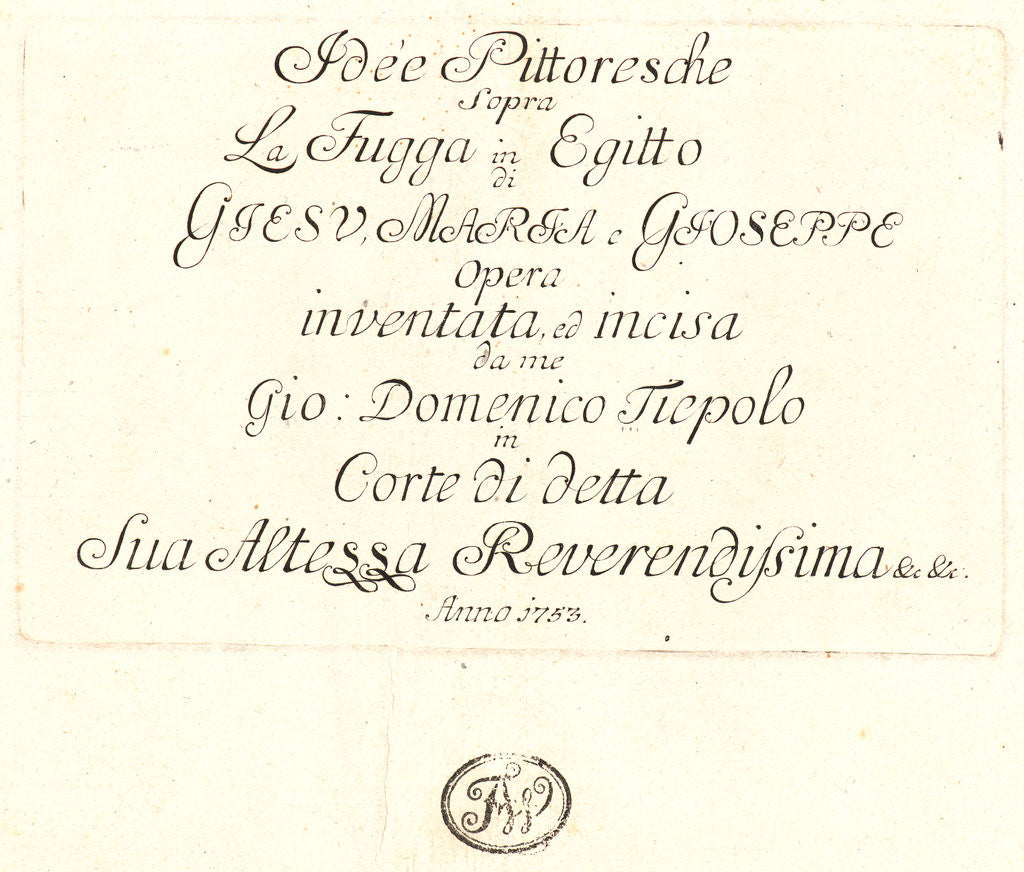 Idée Pittoresche
Sopra
La Fugga in Egitto
di
GIESV, MARIA e GIOSEPPE
Opera
inventata, ed incisa
da me
Gio: Domenico Tiepolo
in
Corte di detta
Sua Altezza Reverendiſsima &c &c.
Anno 1753.